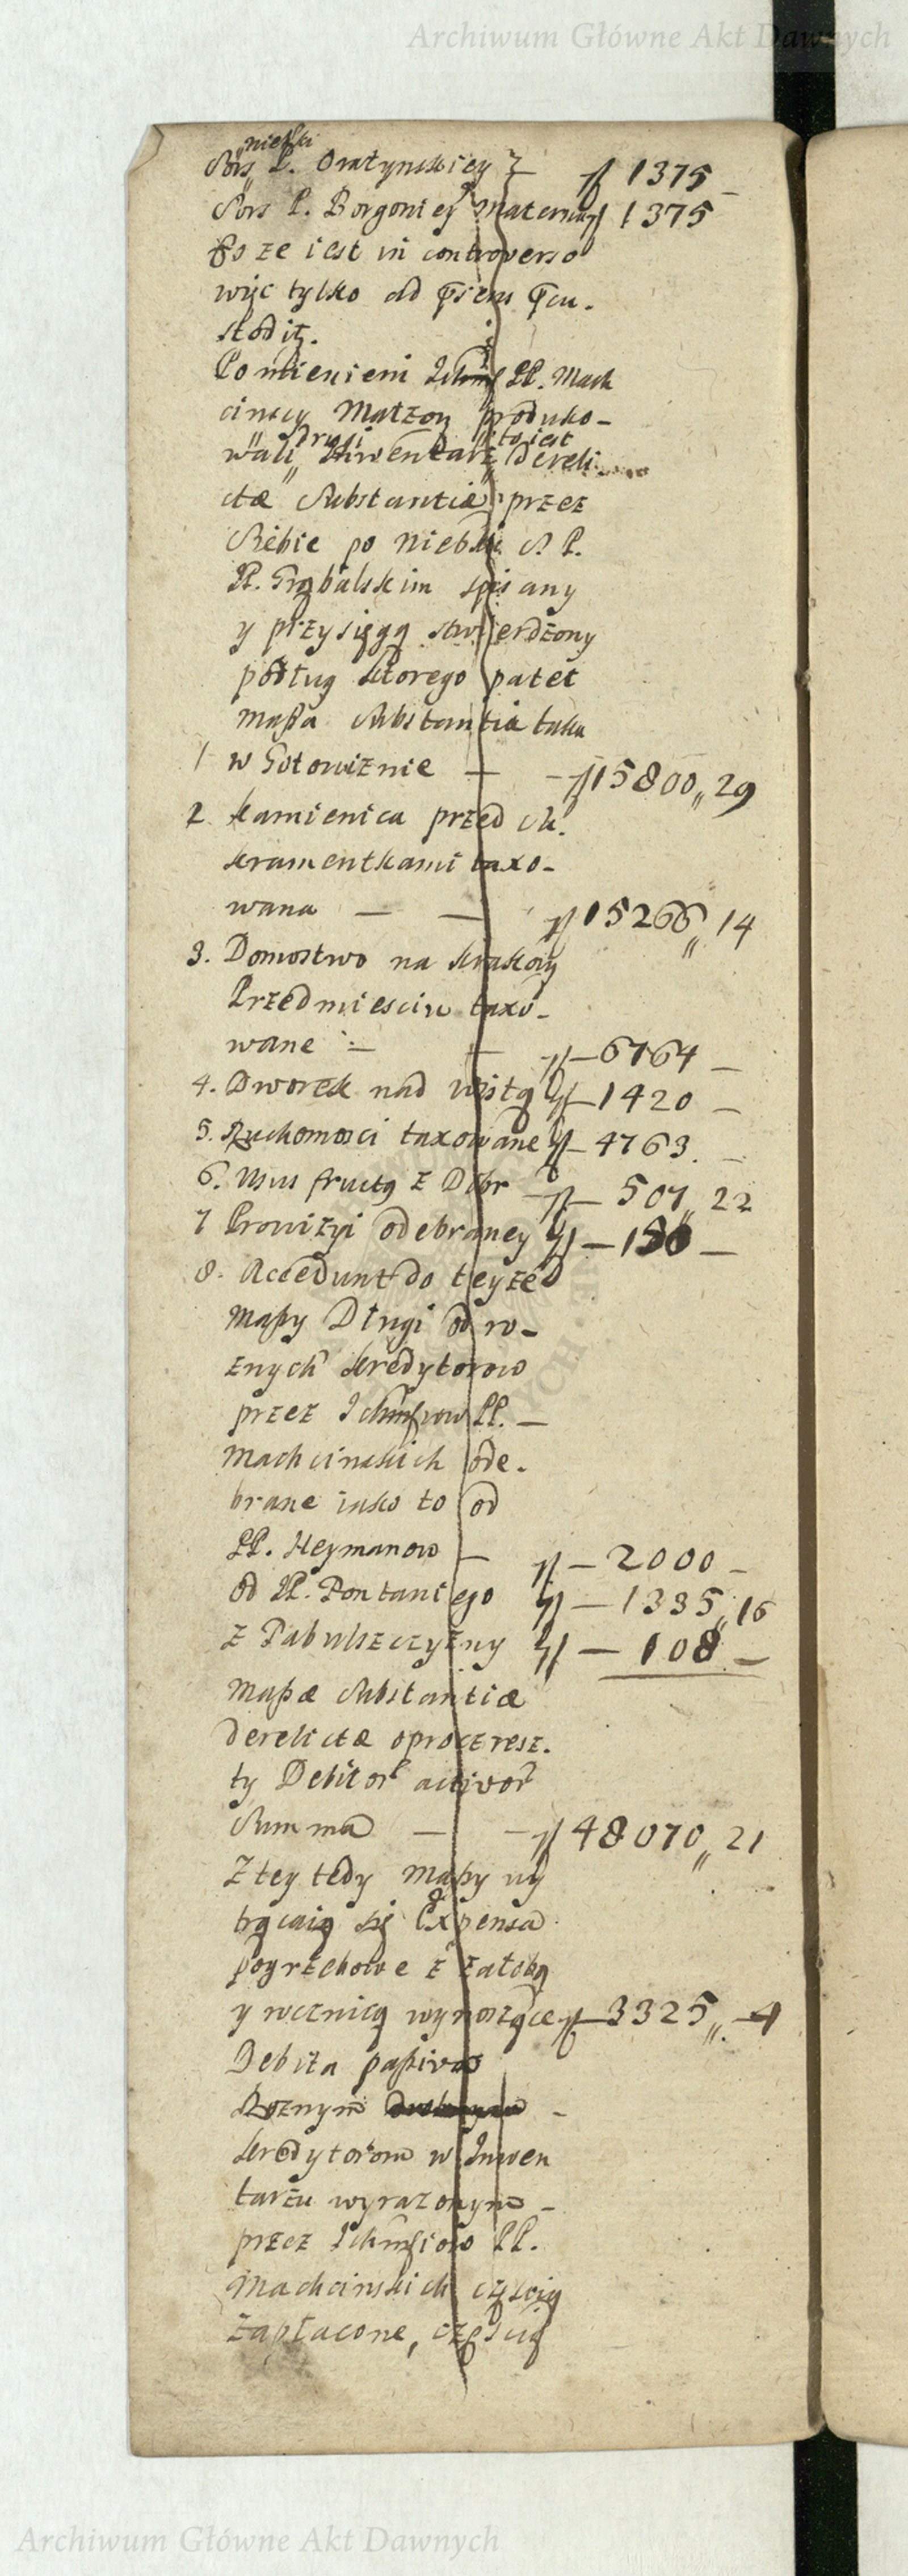 Archiwum Główne Akt Dawnych
nieński
Sors P. Oratyńskiey ƒ 1375 _
Sors P. Borgoniey Materna ƒ 1375
Ps ze iest in controverso
więc tylko ad
stodit.
Pomienieni Ichm PP. Mach
cinscy Małzon produko-
drugi to iest
wali Inwentarz dereli
ctæ Substantiæ przez
Siebie po niebie S. P.
P. Grąbalskim spisany
y przysięgą stwierdzony
podług ktorego patet
maßa Substantia taka
1 w Gotowiznie — ƒ 15800 „ 29
2 Kamienica przed Sa.
kramentkami taxo-
wana — — ƒ 15266 „ 14
3. Domostwo na Krakow
Przedmiesciu taxo-
wane — — ƒ — 6764 _
4. Dworek nad Wisłą ƒ — 1420 —
5. Ruchomosci taxowane ƒ — 4763. _
6. Usus fructg z Dobr — ƒ — 507 „ 22
7 Prowizyi odebraney ƒ — 156 —
8. Accedunt do teyze
Maßy Długi od ro-
znych Kredytorow
przez Ichmsciow PP. —
Machcinskich ode-
brane iako to od
PP. Heymanow — ƒ — 2000 —
od P. Pontaniego ƒ — 1335 „ 16
z Pabulszczyzny ƒ — 108 —
Maßæ Substantiæ
derelictæ oprocz resz-
ty Debitor activor
Summa — — ƒ 48070 „ 21
Z tey tedy Maßy wy
trącaią się Expensa
pogrzebowe z załobą
y rocznicą wynoszące ƒ — 3325 „ — 4
Debita paßiva
Roznym —
Kredytorom w Inwen
tarzu wyrazonym —
przez Ichmsciow PP.
Machcinskich częscią
zapłacone, częscią
Archiwum Główne Akt Dawnych